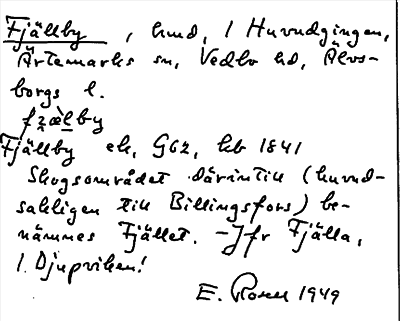 Fjällby, hmd, 1 Huvudgingen,
Ärtemarks sn, Vedbo hd, Älvs-
borgs l.
fzæ̀lby
Fjällby ek, G62, kb 1841
Skogsområdet därintill (huvud-
sakligen till Billingsfors) be-
nämnes Fjället. - Jfr Fjälla,
1. Djupviken!
E. Rosell 1949